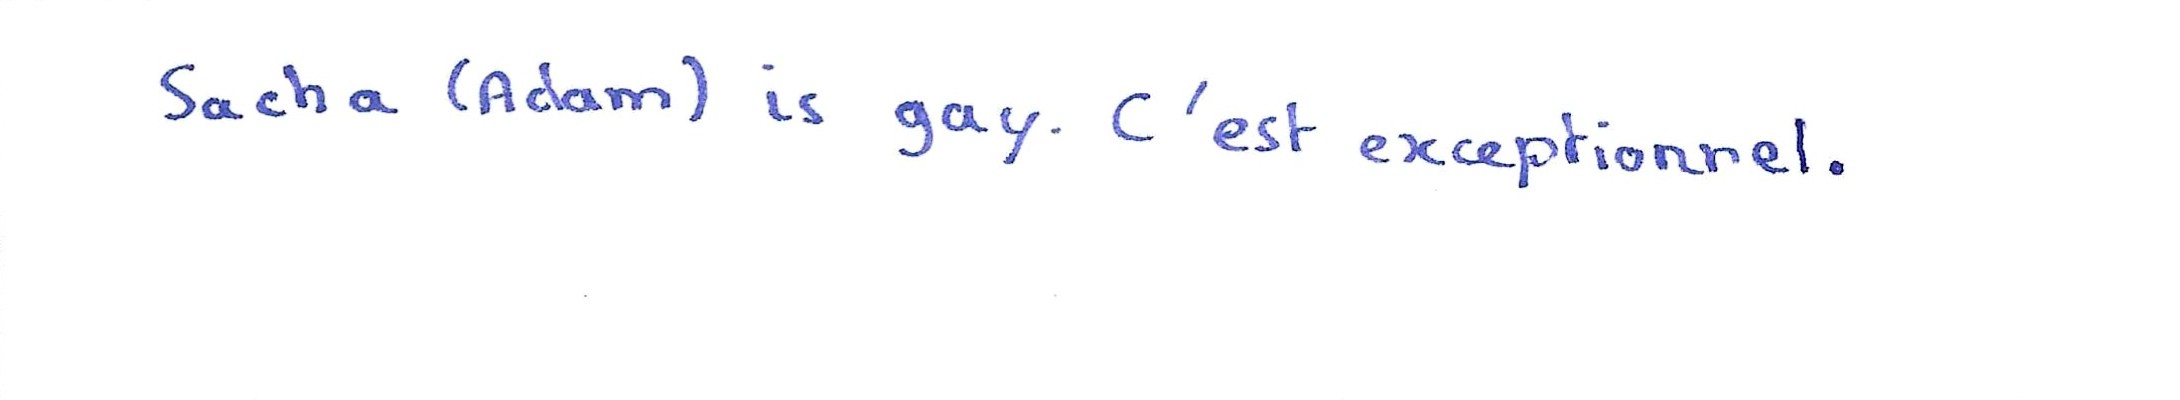 Sacha (Adam) is gay. C'est exceptionnel.